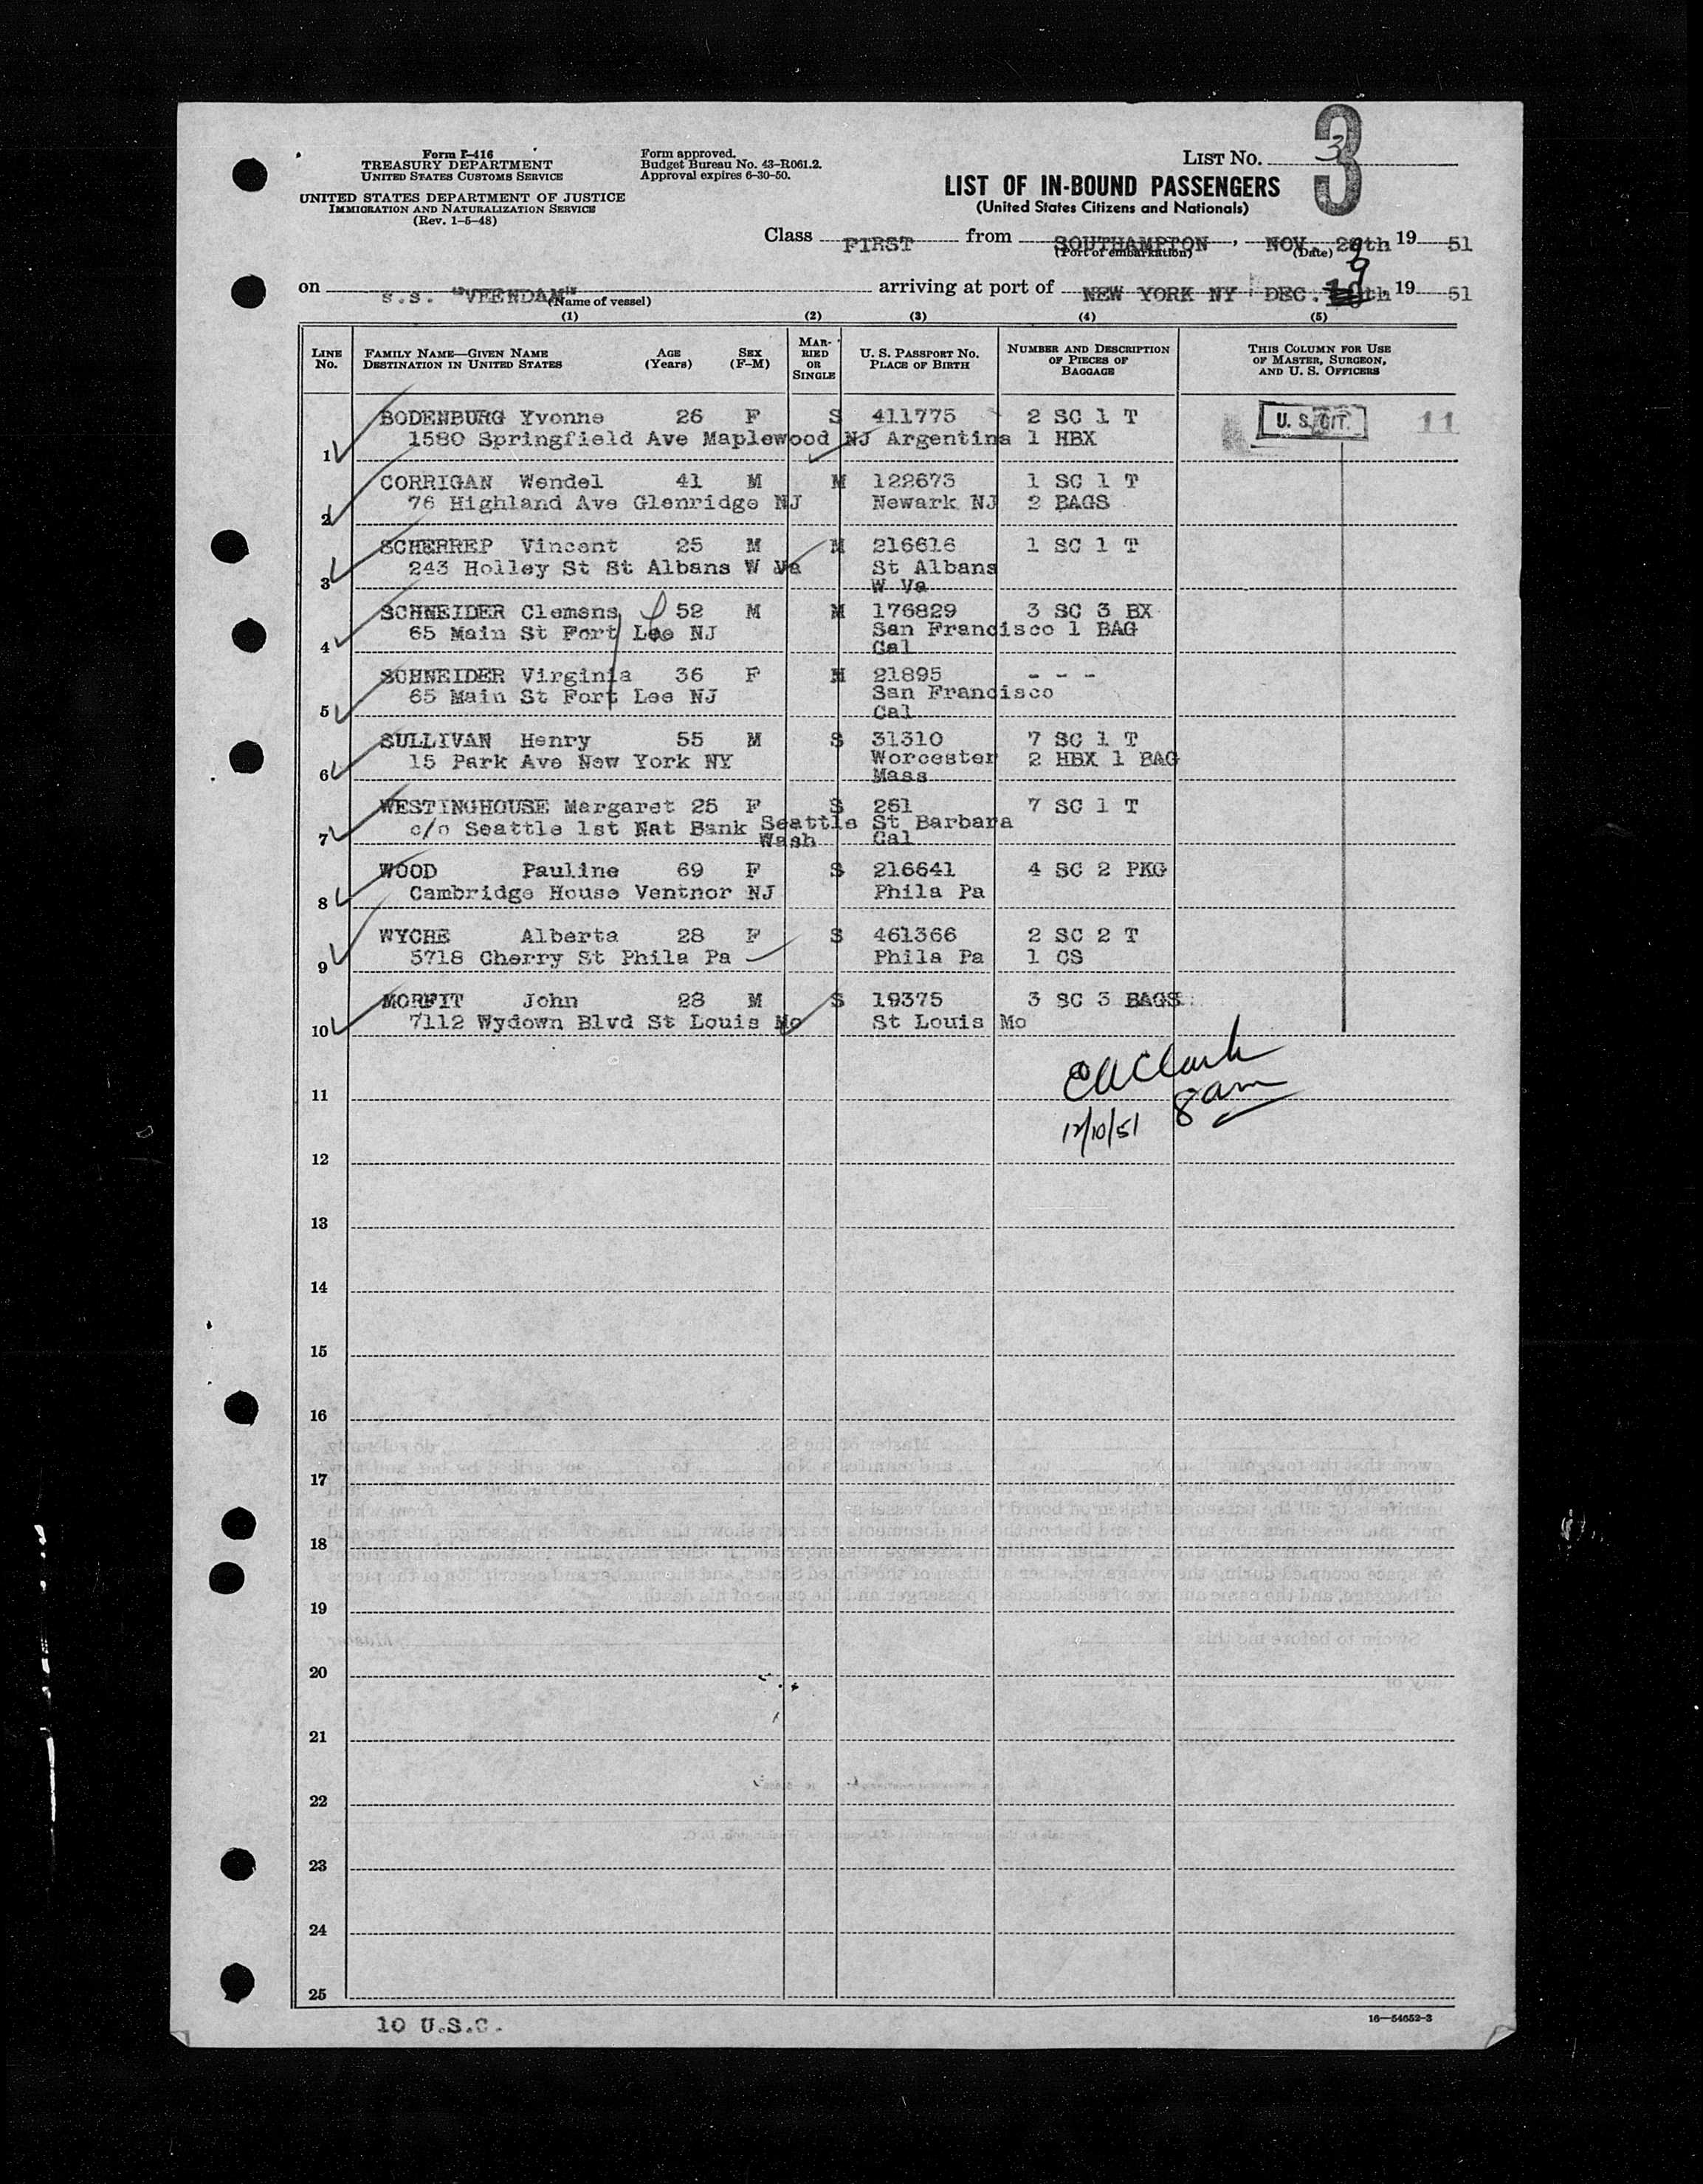 Form I-416
TREASURY DEPARTMENT
UNITED STATES CUSTOMS SERVICE
UNITED STATES DEPARTMENT OF JUSTICE
IMMIGRATION AND NATURALIZATION SERVICE
(Rev. 1-5-48)
Form approved.
Budget Bureau No. 43-R061.2.
Approval expires 6-30-50.
LIST NO. 3
3
LIST OF IN-BOUND PASSENGERS
(United States Citizens and Nationals)
Class FIRST from SOUTHAMPTON, NOV. 29th 19 51
(Port of embarkation) (Date)
on s.s. "VEENDAM" arriving at port of NEW YORK NY DEC. 19 51
(Name of vessel)
(1) (2) (3) (4) (5)
LINE No. FAMILY NAME—GIVEN NAME DESTINATION IN UNITED STATES AGE (Years) SEX (F-M) MARRIED OR SINGLE U. S. PASSPORT NO. PLACE OF BIRTH NUMBER AND DESCRIPTION OF PIECES OF BAGGAGE THIS COLUMN FOR USE OF MASTER, SURGEON, AND U. S. OFFICERS
BODENBURG Yvonne 26 F S 411775 2 SC 1 T U. S. CIT. 11
1 1580 Springfield Ave Maplewood NJ Argentina 1 HBX
CORRIGAN Wendel 41 M M 122673 1 SC 1 T
2 76 Highland Ave Glenridge NJ Newark NJ 2 BAGS
SCHERREP Vincent 25 M M 216616 1 SC 1 T
3 243 Holley St St Albans W Va St Albans
W Va
SCHNEIDER Clemens 52 M M 176829 3 SC 3 BX
4 65 Main St Fort Lee NJ San Francisco 1 BAG
Cal
SCHNEIDER Virginia 36 F M 21895 - - -
5 65 Main St Fort Lee NJ San Francisco
Cal
SULLIVAN Henry 55 M S 31310 7 SC 1 T
6 15 Park Ave New York NY Worcester 2 HBX 1 BAG
Mass
WESTINGHOUSE Margaret 25 F S 261 7 SC 1 T
7 c/o Seattle 1st Nat Bank Seattle St Barbara
Wash Cal
WOOD Pauline 69 F S 216641 4 SC 2 PKG
8 Cambridge House Ventnor NJ Phila Pa
WYCHE Alberta 28 F S 461366 2 SC 2 T
9 5718 Cherry St Phila Pa Phila Pa 1 CS
MORFIT John 28 M S 19375 3 SC 3 BAGS
10 7112 Wydown Blvd St Louis Mo St Louis Mo
EA Clark
8 am
11
12/10/51
12
13
14
15
16
17
18
19
20
21
22
23
24
25
10 U.S.C.
16—54652-3